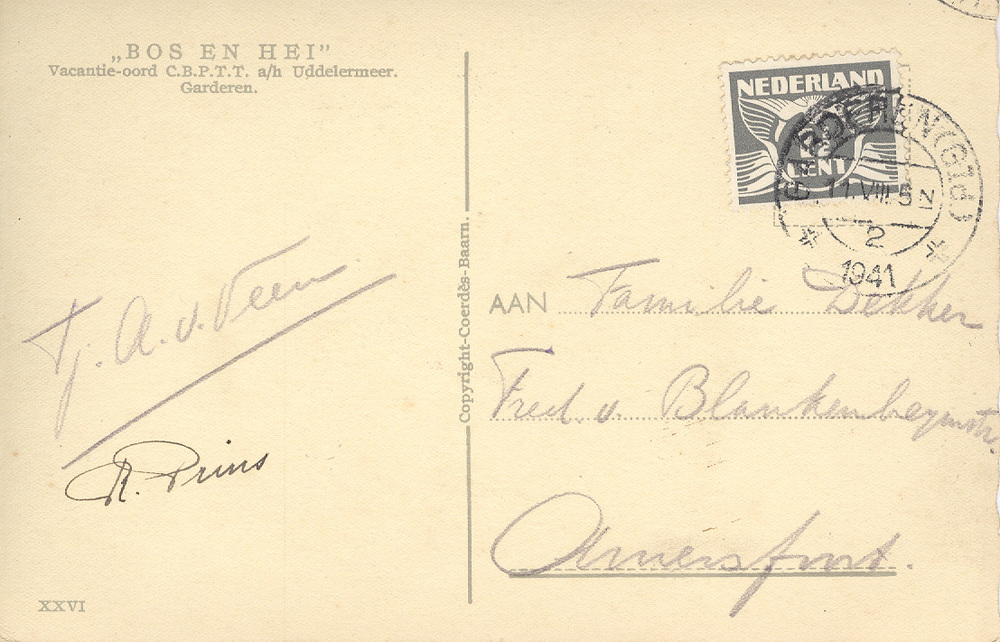 „BOS EN HEI”
Vacantie-oord C.B.P.T.T. a/h Uddelermeer.
Garderen.
Tj. A. v. Veen
R. Prins
XXVI
Copyright-Coerdès-Baarn.
NEDERLAND
CENT
GARDEREN (Gld)
11.VIII.5 N
2
1941
AAN Familie Dekker
Fred. v. Blankenheymstr.
Amersfoort.